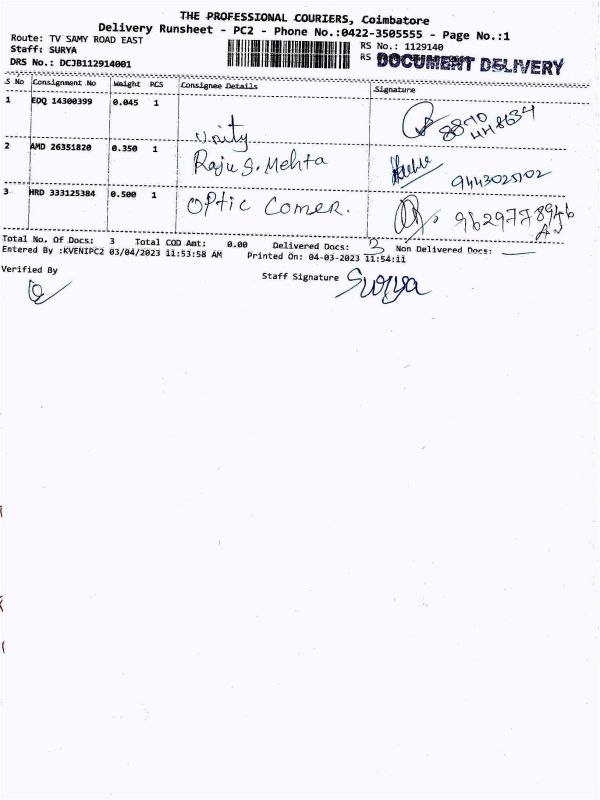 THE PROFESSIONAL COURIERS, Coimbatore
Delivery Runsheet - PC2 - Phone No.:0422-3505555 - Page No.:1
Route: TV SAMY ROAD EAST
Staff: SURYA
DRS No.: DCJB112914001
RS No.: 1129140
RS DOCUMENT DELIVERY
S No Consignment No Weight PCS Consignee Details Signature
1 EDQ 14300399 0.045 1 Unity
2 AMD 26351820 0.350 1 Raju S. Mehta 9443025102
3 HRD 333125384 0.500 1 Optic Corner.
Total No. Of Docs: 3 Total COD Amt: 0.00 Delivered Docs: 3 Non Delivered Docs:
Entered By :KVENIPC2 03/04/2023 11:53:58 AM Printed On: 04-03-2023 11:54:11
Verified By Staff Signature Surya